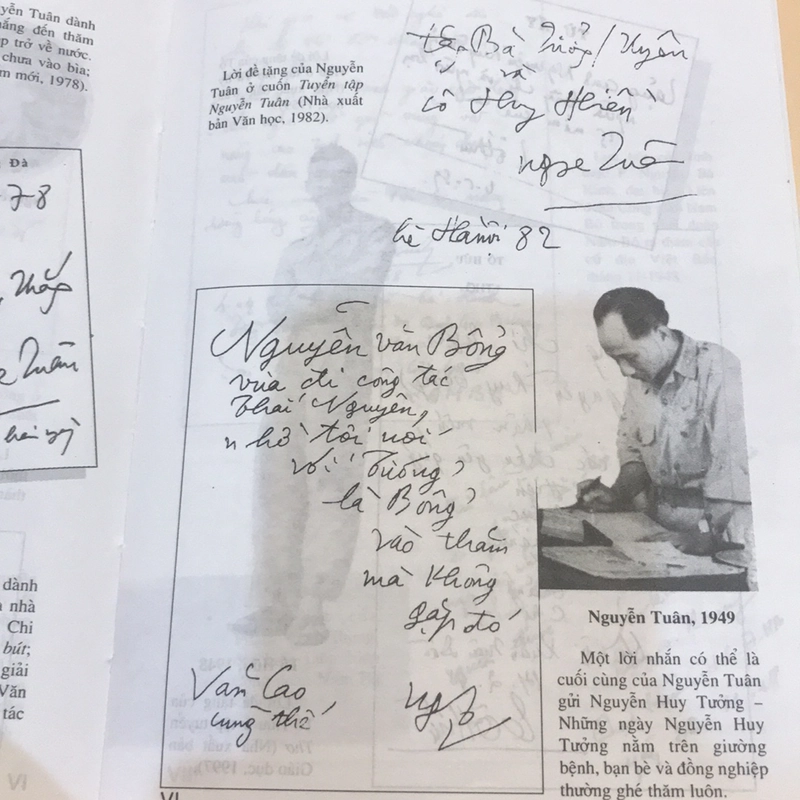 yễn Tuân dành
ắng đến thăm
p trở về nước.
chưa vào bìa;
m mới, 1978).
Đà
78
Thắng
Tuân
dành
nhà
Chi
bút;
giải
Văn
tác
Lời đề tặng của Nguyễn
Tuân ở cuốn Tuyển tập
Nguyễn Tuân (Nhà xuất
bản Văn học, 1982).
tặng Bà Tưởng / Uyên
và
cô Huy Hiền
Tuân
hè Hanội 82
Nguyễn văn Bổng
vừa đi công tác
Thái Nguyên,
nhờ tôi nói
với Tưởng
là Bổng
vào thăm
mà không
gặp đó
Văn Cao
cũng thế
Nguyễn Tuân, 1949
Một lời nhắn có thể là
cuối cùng của Nguyễn Tuân
gửi Nguyễn Huy Tưởng –
Những ngày Nguyễn Huy
Tưởng nằm trên giường
bệnh, bạn bè và đồng nghiệp
thường ghé thăm luôn.
VI